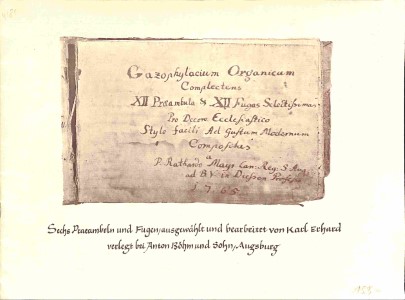 Gazophylacium Organicum
Complectens
XII Præambula & XII Fugas Selectissimas
Pro Decore Ecclesiastico
Stylo facili Ad Gustum Modernum
Composita
P. Rathardo Mayr Can. Reg. S. Aug.
ad B.V. in Diessen Professo
1765
Sechs Praeambeln und Fugen, ausgewählt und bearbeitet von Karl Erhard
verlegt bei Anton Böhm und Sohn, Augsburg